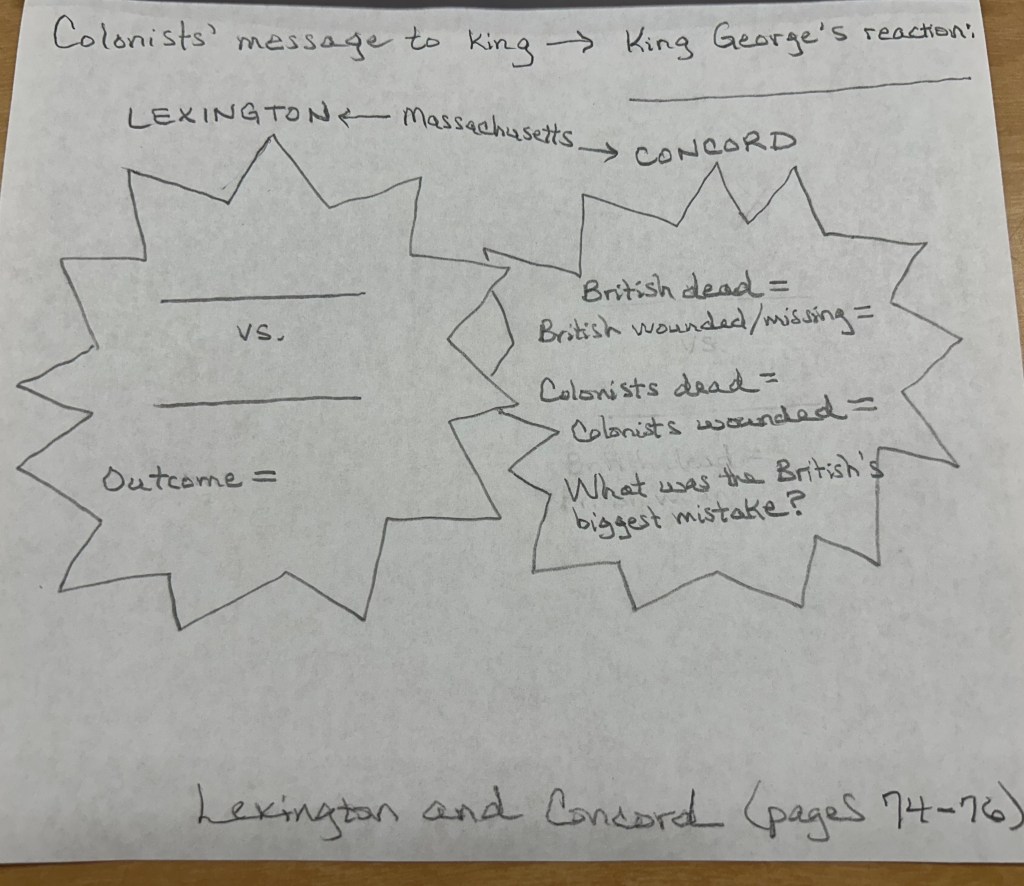 Colonists' message to King → King George's reaction:
LEXINGTON ← Massachusetts → CONCORD
vs.
Outcome =
British dead =
British wounded/missing =
Colonists dead =
Colonists wounded =
What was the British's
biggest mistake?
Lexington and Concord (pages 74-76)